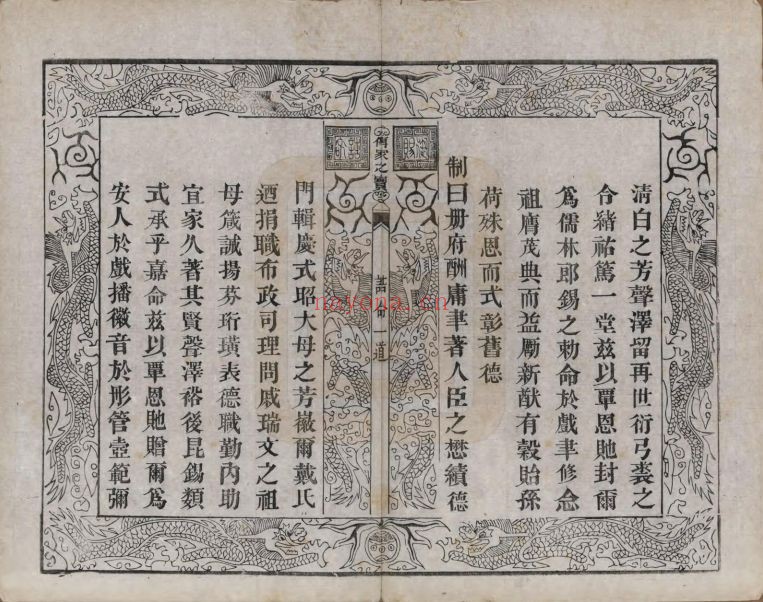 清白之芳聲澤留再世衍弓裘之
令緒祐篤一堂兹以覃恩貤封爾
爲儒林郎錫之勅命於戲聿修念
祖膺茂典而益勵新猷有穀貽孫
荷殊恩而式彰舊德
制曰册府酬庸聿著人臣之懋績德
傳家之寶
誥命一道
門輯慶式昭大母之芳徽爾戴氏
迺捐職布政司理問戚瑞文之祖
母箴誠揚芬珩璜表德職勤内助
宜家久著其賢聲澤裕後昆錫類
式承乎嘉命兹以覃恩貤贈爾爲
安人於戲播徽音於彤管壼範彌